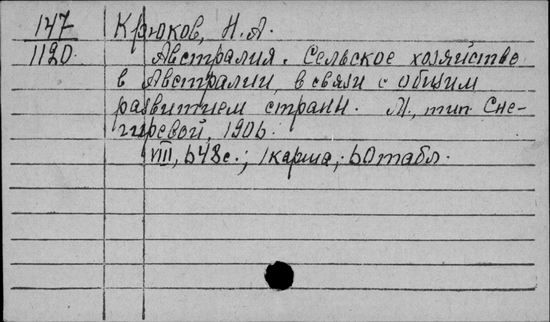 147 Крюков, Н. А.
1120. Австралия. Сельское хозяйство
в Австралии, в связи с общим
развитием страны. М., тип. Сне-
гиревой, 1906.
VIII, 648 с.; 1 карта; 60 табл.